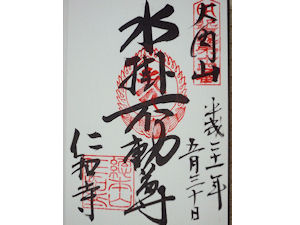 大内山
平成二十一年
五月三十日
水掛不動尊
仁和寺